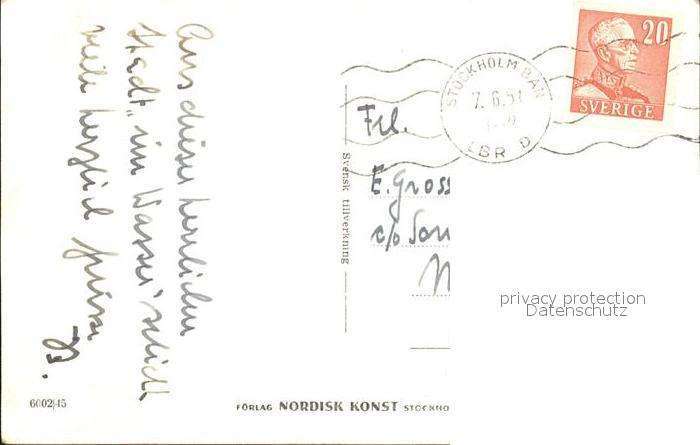 Aus dieser herrlichen
Stadt „im Wasser“ schickt
viele herzliche Grüsse
B.
Svensk tillverkning
20
SVERIGE
STOCKHOLM BAN
7.6.51
LBR D
Frl.
E. Gross
c/o Son
N
privacy protection
Datenschutz
6002/45
FÖRLAG NORDISK KONST STOCKHO